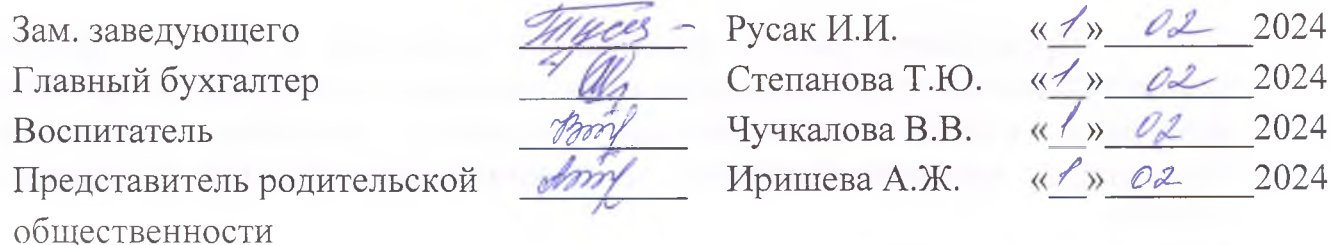 Зам. заведующего Русак И.И. «1» 02 2024
Главный бухгалтер Степанова Т.Ю. «1» 02 2024
Воспитатель Чучкалова В.В. «1» 02 2024
Представитель родительской Иришева А.Ж. «1» 02 2024
общественности